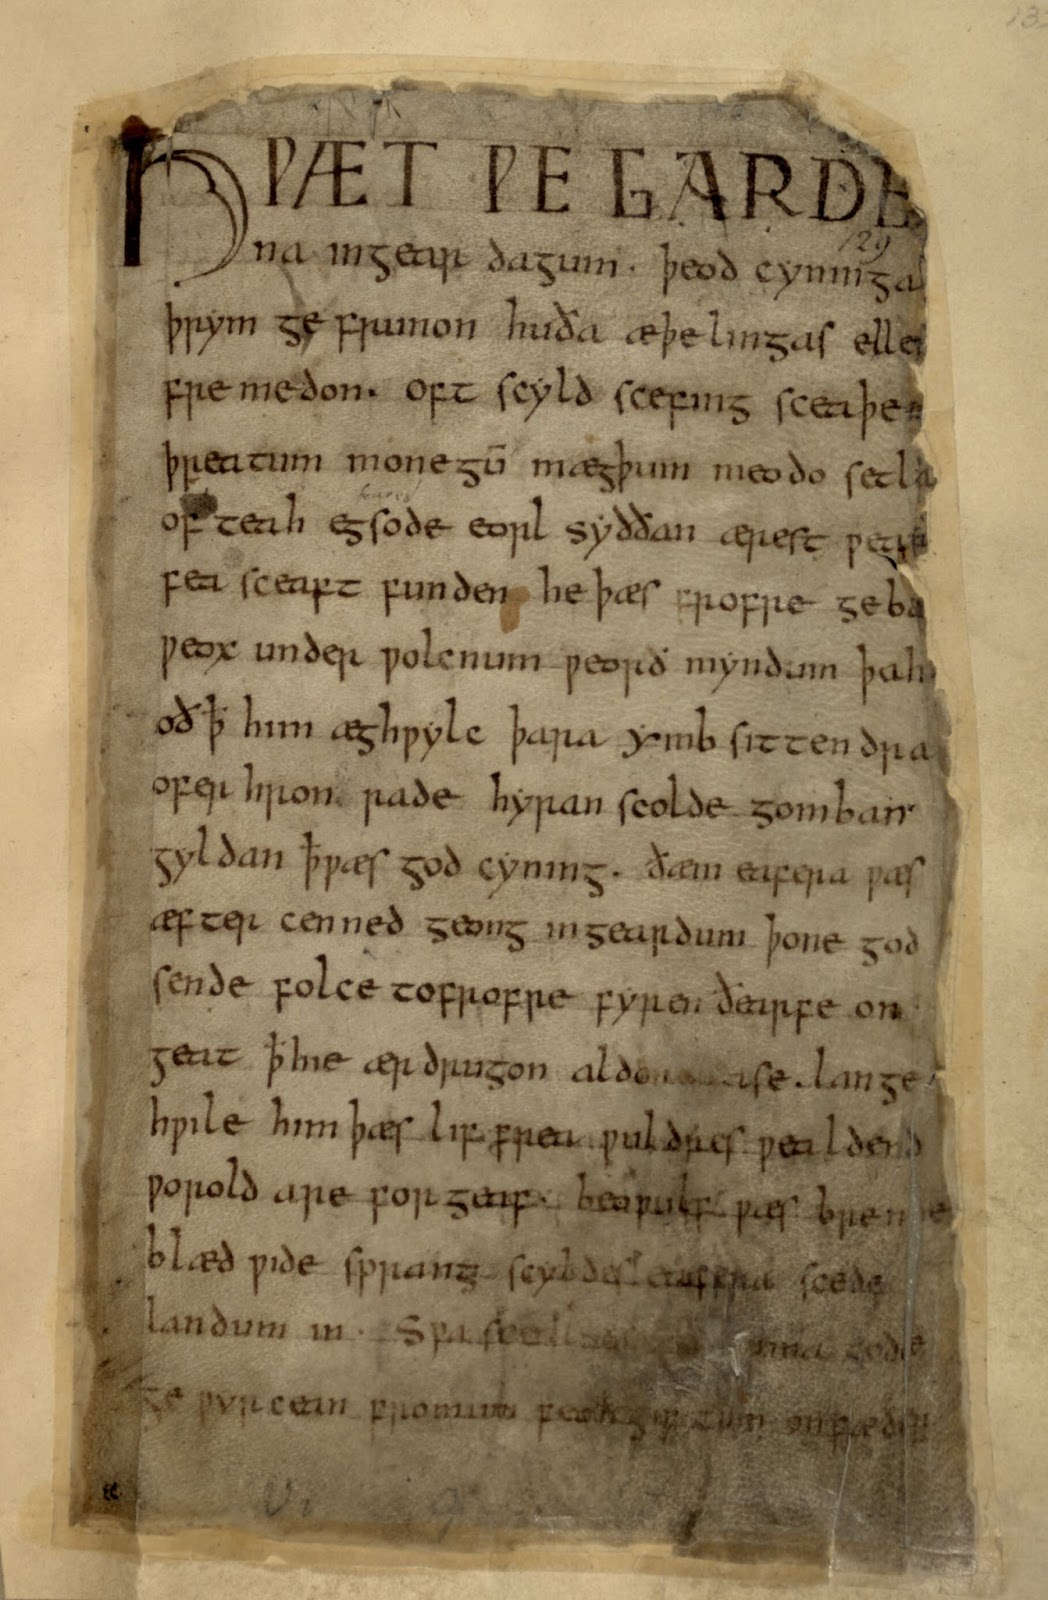 HǷÆT ǷE GARDE
na ingear dagum. þeod cyninga
þrym ge frunon huða æþelingas ellen
fre medon. oft scyld scefing sceaþen
þreatum monegū mægþum meodo setla
of teah egsode eorl syððan ærest ƿear
fea sceaft funden he þæs frofre geba
ƿeox under ƿolcnum ƿeorð myndum þah
oð ꝥ him æghƿylc þara ymb sittendra
ofer hron rade hyran scolde gomban
gyldan ꝥƿæs god cyning. ðæm eafera ƿæs
æfter cenned geong ingeardum þone god
sende folce tofrofre fyren ðearfe on
geat ꝥhie ær drugon aldor ase. lange
hƿile him þæs lif frea ƿuldres ƿealdend
ƿorold are for geaf. beoƿulf ƿæs breme
blæd ƿide sprang scyldes eafera scede
landum in. Sƿa sceal guma gode
ge ƿyrcean fromum feoh giftum on fæder
129